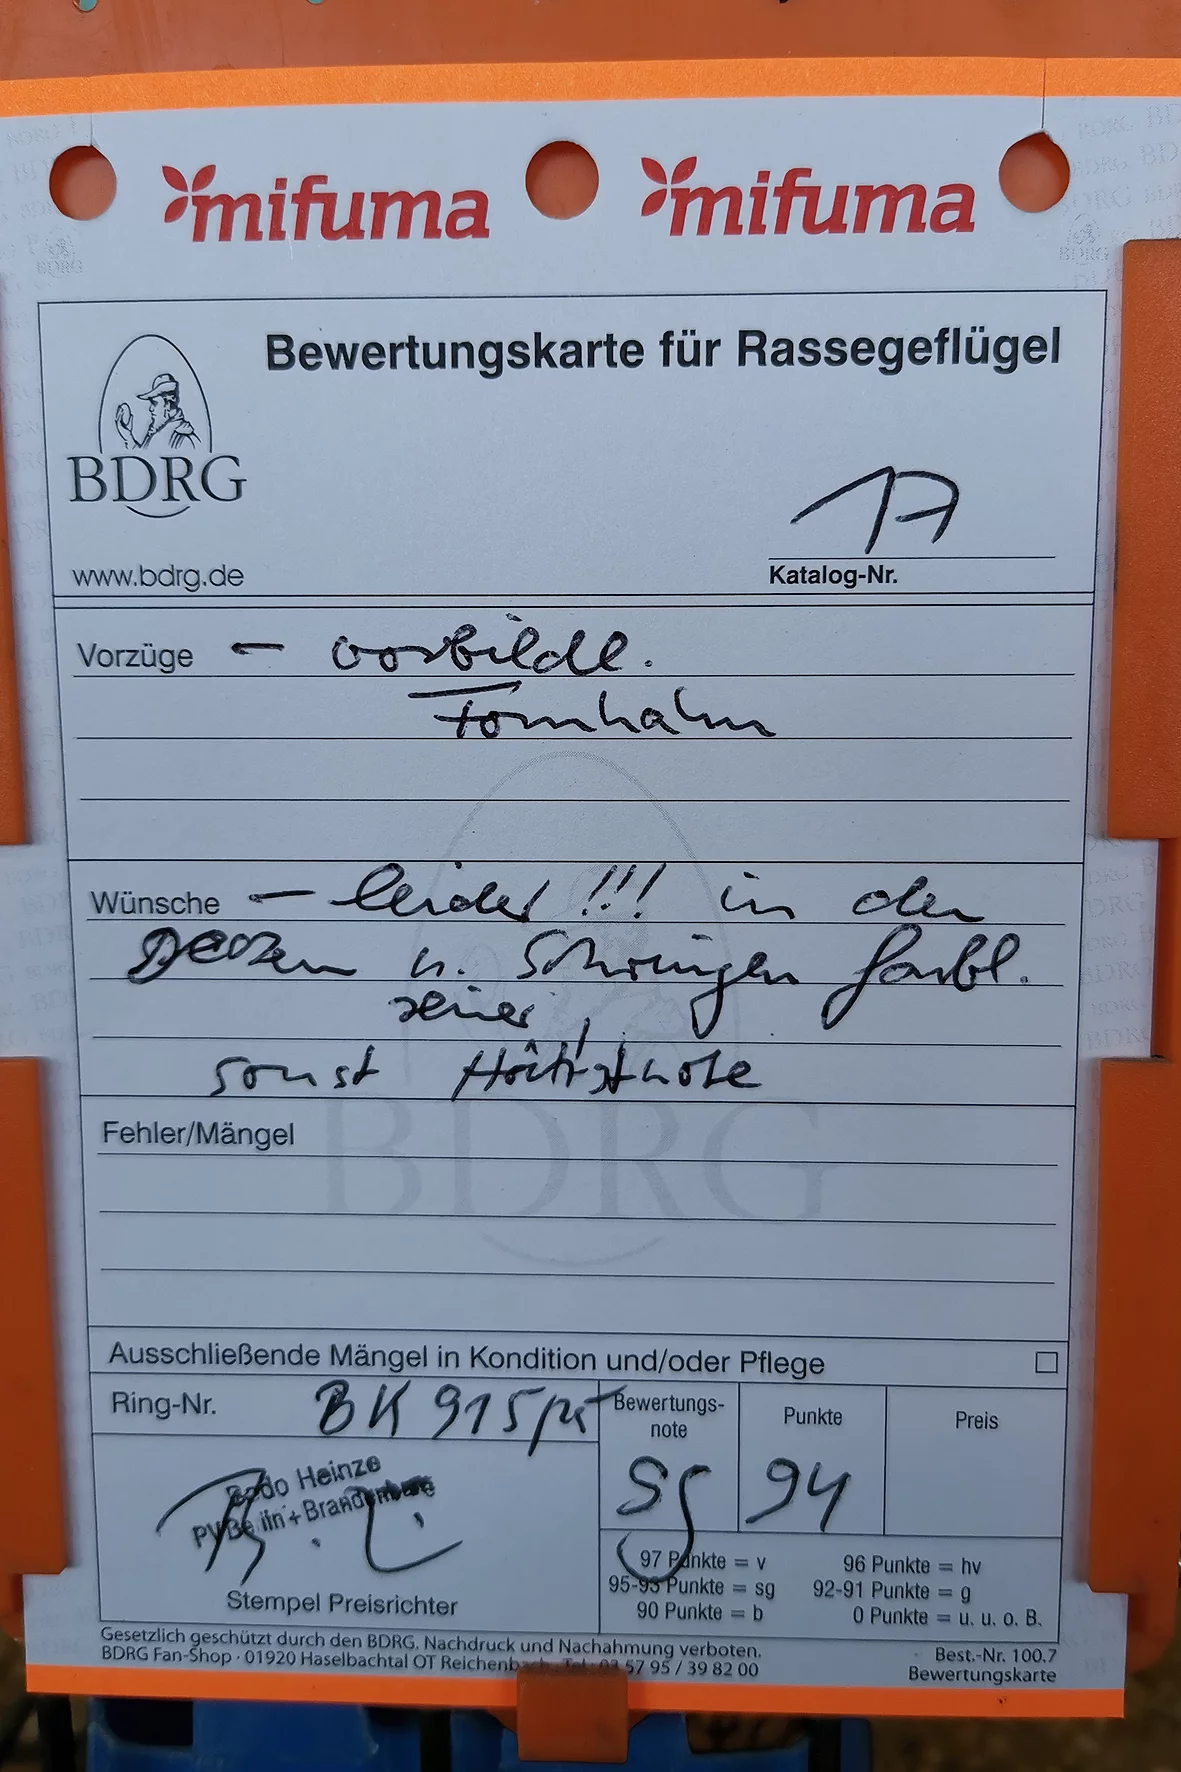 mifuma mifuma
Bewertungskarte für Rassegeflügel
BDRG
www.bdrg.de
17
Katalog-Nr.
Vorzüge - vorbildl.
Formhahn
Wünsche - leider !!! in den
Decken u. Schwingen farbl.
reiner,
sonst Höchstnote
BDRG
Fehler/Mängel
Ausschließende Mängel in Kondition und/oder Pflege
Ring-Nr. BK 915
Bewertungs-
note
Punkte
Preis
Sg 94
Bodo Heinze
PV Berlin+Brandenburg
Stempel Preisrichter
97 Punkte = v 96 Punkte = hv
95-93 Punkte = sg 92-91 Punkte = g
90 Punkte = b 0 Punkte = u. u. o. B.
Gesetzlich geschützt durch den BDRG. Nachdruck und Nachahmung verboten.
BDRG Fan-Shop · 01920 Haselbachtal OT Reichenbach · Tel. 03 57 95 / 39 82 00
Best.-Nr. 100.7
Bewertungskarte